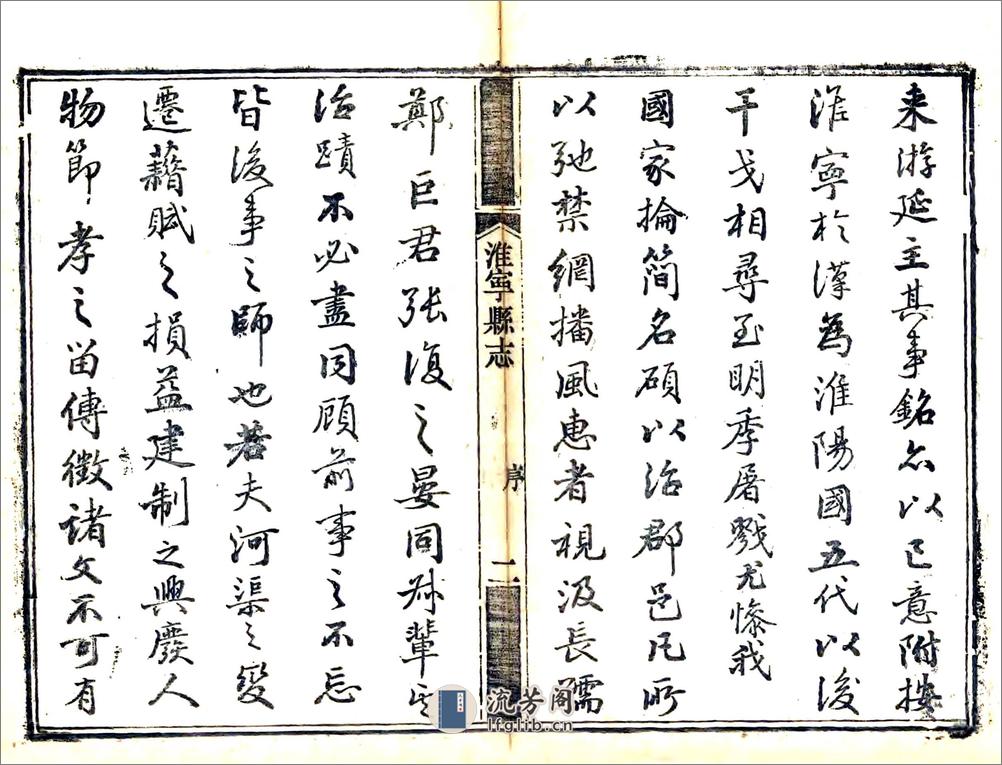 来游延主其事銘亦以己意附按
淮寧於漢為淮陽國五代以後
干戈相尋至明季屠戮尤慘我
國家掄簡名碩以治郡邑凡所
以弛禁網播風惠者視汲長孺
淮寧縣志
序
二
鄭巨君張復之晏同叔輩其
治蹟不必盡同顧前事之不忘
皆後事之師也若夫河渠之變
遷藉賦之損益建制之興廢人
物節孝之留傳徵諸文不可有
流芳阁
lfglib.cn